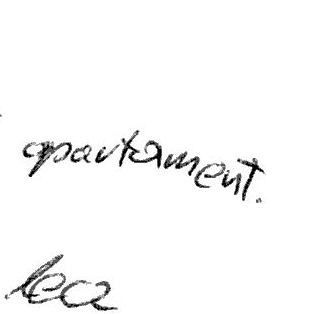 apartament.
lea